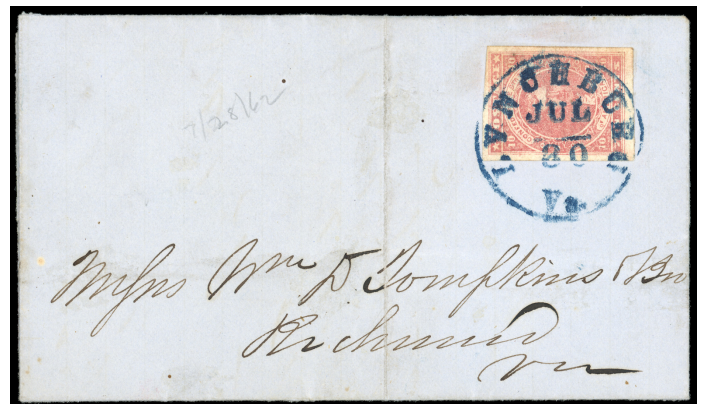 LYNCHBURG
JUL
30
Va.
7/28/62
Messrs Wm D Tompkins & Bro
Richmond
Va